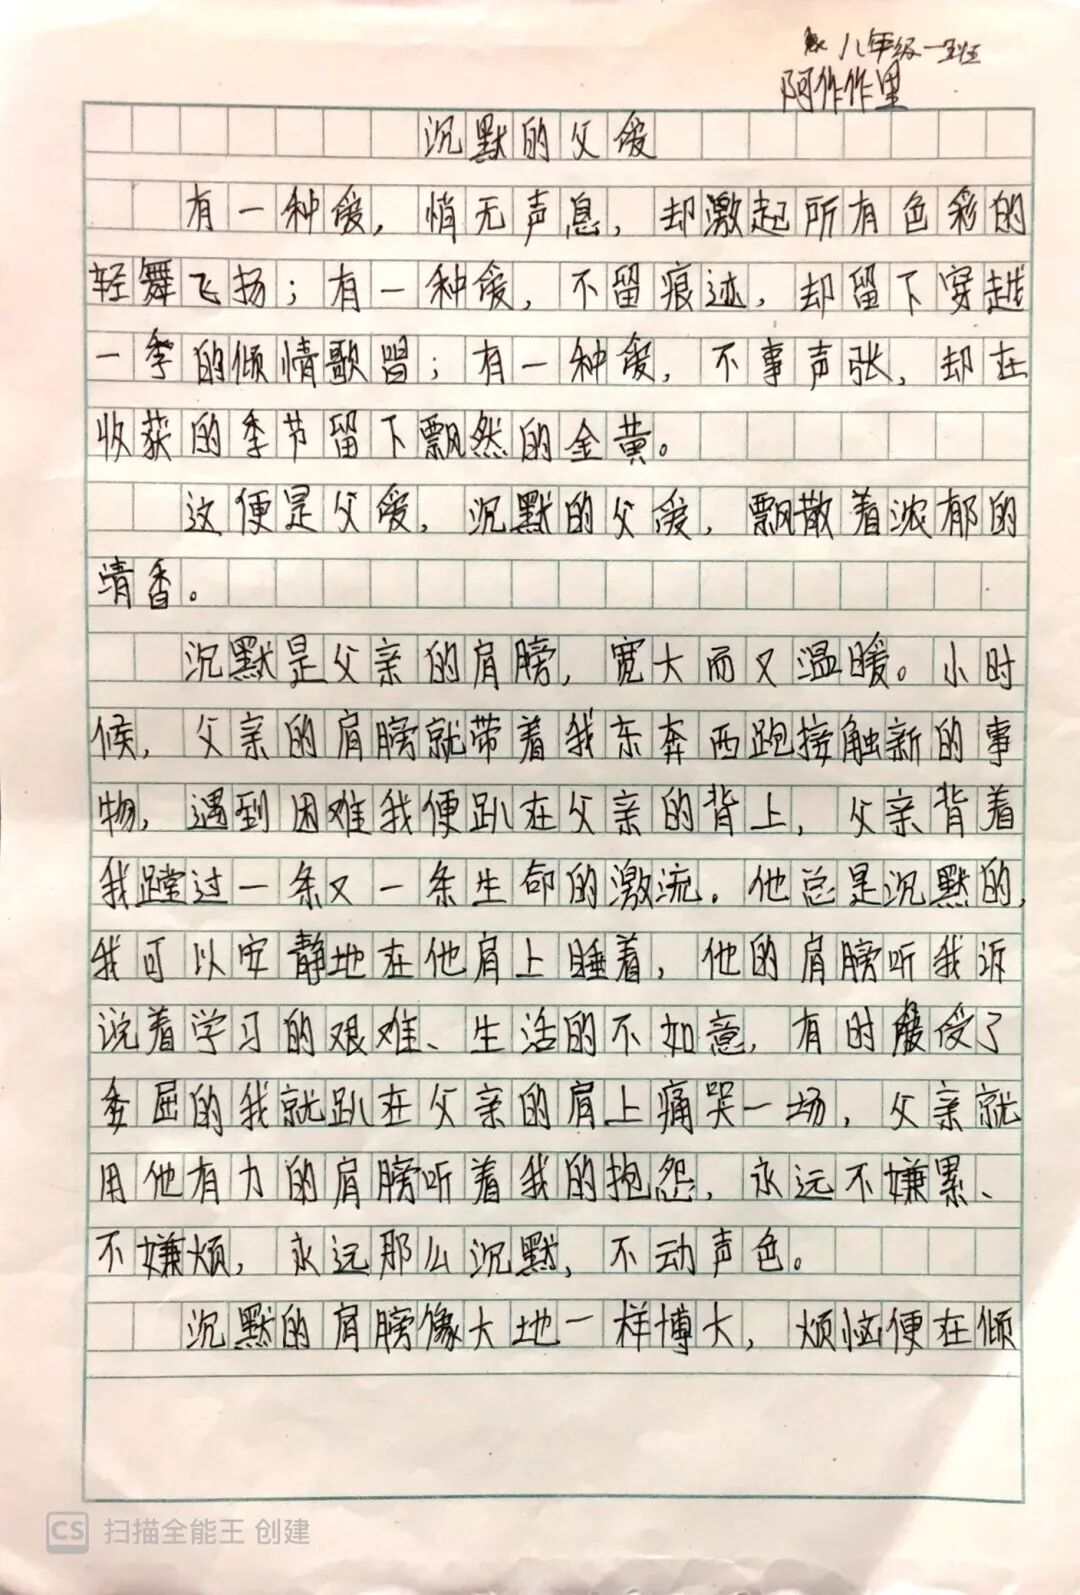 八年级一班
阿作作里
沉默的父爱
有一种爱，悄无声息，却激起所有色彩的
轻舞飞扬；有一种爱，不留痕迹，却留下穿越
一季的倾情歌唱；有一种爱，不事声张，却在
收获的季节留下飘然的金黄。
这便是父爱，沉默的父爱，飘散着浓郁的
清香。
沉默是父亲的肩膀，宽大而又温暖。小时
候，父亲的肩膀就带着我东奔西跑接触新的事
物，遇到困难我便趴在父亲的背上，父亲背着
我蹚过一条又一条生命的激流。他总是沉默的，
我可以安静地在他肩上睡着，他的肩膀听我诉
说着学习的艰难、生活的不如意，有时受了
委屈的我就趴在父亲的肩上痛哭一场，父亲就
用他有力的肩膀听着我的抱怨，永远不嫌累、
不嫌烦，永远那么沉默，不动声色。
沉默的肩膀像大地一样博大，烦恼便在倾
CS 扫描全能王 创建